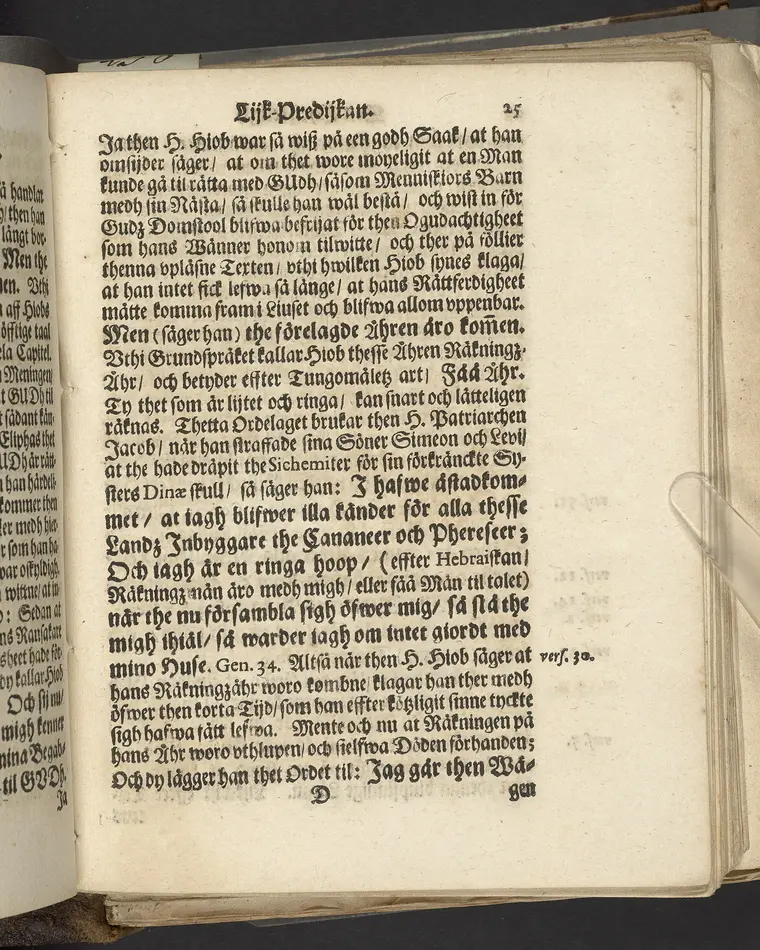 Lijk-Predijkan. 25
Ja then H. Hiob war så wiß på een godh Saak/ at han
omsijder säger/ at om thet wore moyeligit at en Man
kunde gå til rätta med GUdh/ såsom Menniskiors Barn
medh sin Nästa/ så skulle han wäl bestå/ och wist in för
Gudz Domstool blifwa befrijat för then Ogudachtigheet
som hans Wänner honom tilwitte/ och ther på föllier
thenna vpläsne Texten/ vthi hwilken Hiob synes klaga/
at han intet fick lefwa så länge/ at hans Rättferdigheet
måtte komma fram i Liuset och blifwa allom vppenbar.
Men (säger han) the förelagde Åhren äro kom̃en.
Vthi Grundspråket kallar Hiob thesse Åhren Räkningz-
Åhr/ och betyder effter Tungomåletz art/ Fåå Åhr.
Ty thet som är lijtet och ringa/ kan snart och lätteligen
räknas. Thetta Ordelaget brukar then H. Patriarchen
Jacob/ när han straffade sina Söner Simeon och Levi/
at the hade dräpit the Sichemiter för sin förkränckte Sy-
sters Dinæ skull/ så säger han: I hafwe åstadkom-
met/ at iagh blifwer illa känder för alla thesse
Landz Inbyggare the Cananeer och Phereseer;
Och iagh är en ringa hoop/ (effter Hebraiskan/
Räkningz män äro medh migh/ eller fåå Män til talet)
när the nu försambla sigh öfwer mig/ så slå the
migh ihiäl/ så warder iagh om intet giordt med
mino Huse. Gen. 34. Altså när then H. Hiob säger at vers. 30.
hans Räkningzåhr woro kombne/ klagar han ther medh
öfwer then korta Tijd/ som han effter kötzligit sinne tyckte
sigh hafwa fått lefwa. Mente och nu at Räkningen på
hans Åhr woro vthlupen/ och sielfwa Döden förhanden;
Och dy lägger han thet Ordet til: Jag går then Wä-
D gen
så handlar
/ then han
långt bor-
Men the
men. Vthi
aff Hiobs
öfflige taal
ela Capitel.
Meningen/
GUDh til
t sådant kän-
Eliphas thet
UDh är rätt-
n han härdel-
kommer then
ler medh hie-
som han ha-
war oskyldigh.
wittne/ at in-
: Sedan at
ns Ransakare
sheet hade för-
dy kallar Hiob
Och sij nu/
migh kenner
mina Begab-
til GVDh.
Ja